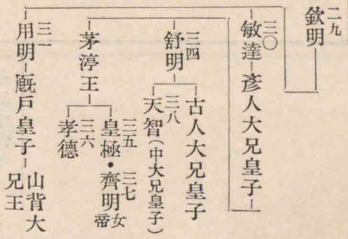 二九
欽明
三〇
敏達―彥人大兄皇子
三四
舒明
古人大兄皇子
三八
天智(中大兄皇子)
茅渟王
三五 三七
皇極・齊明女帝
三六
孝德
三一
用明―廐戶皇子―山背大兄王